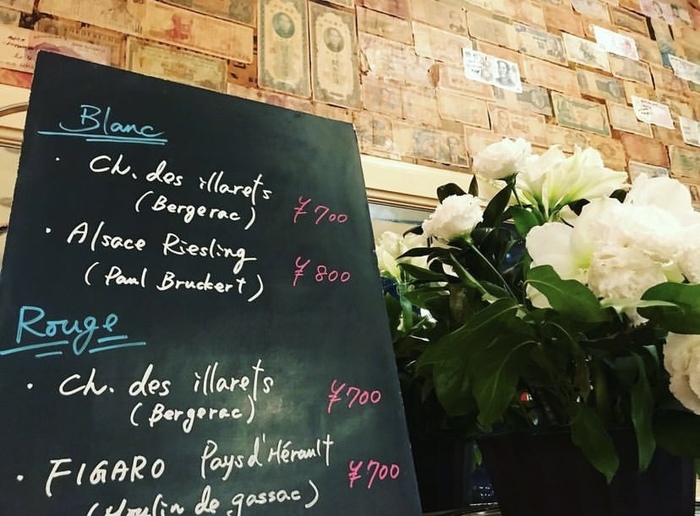 Blanc
· Ch. des illarets
(Bergerac) ¥700
· Alsace Riesling
(Paul Bruckert) ¥800
Rouge
· Ch. des illarets
(Bergerac) ¥700
· FIGARO Pays d'Hérault ¥700
(Moulin de gassac)